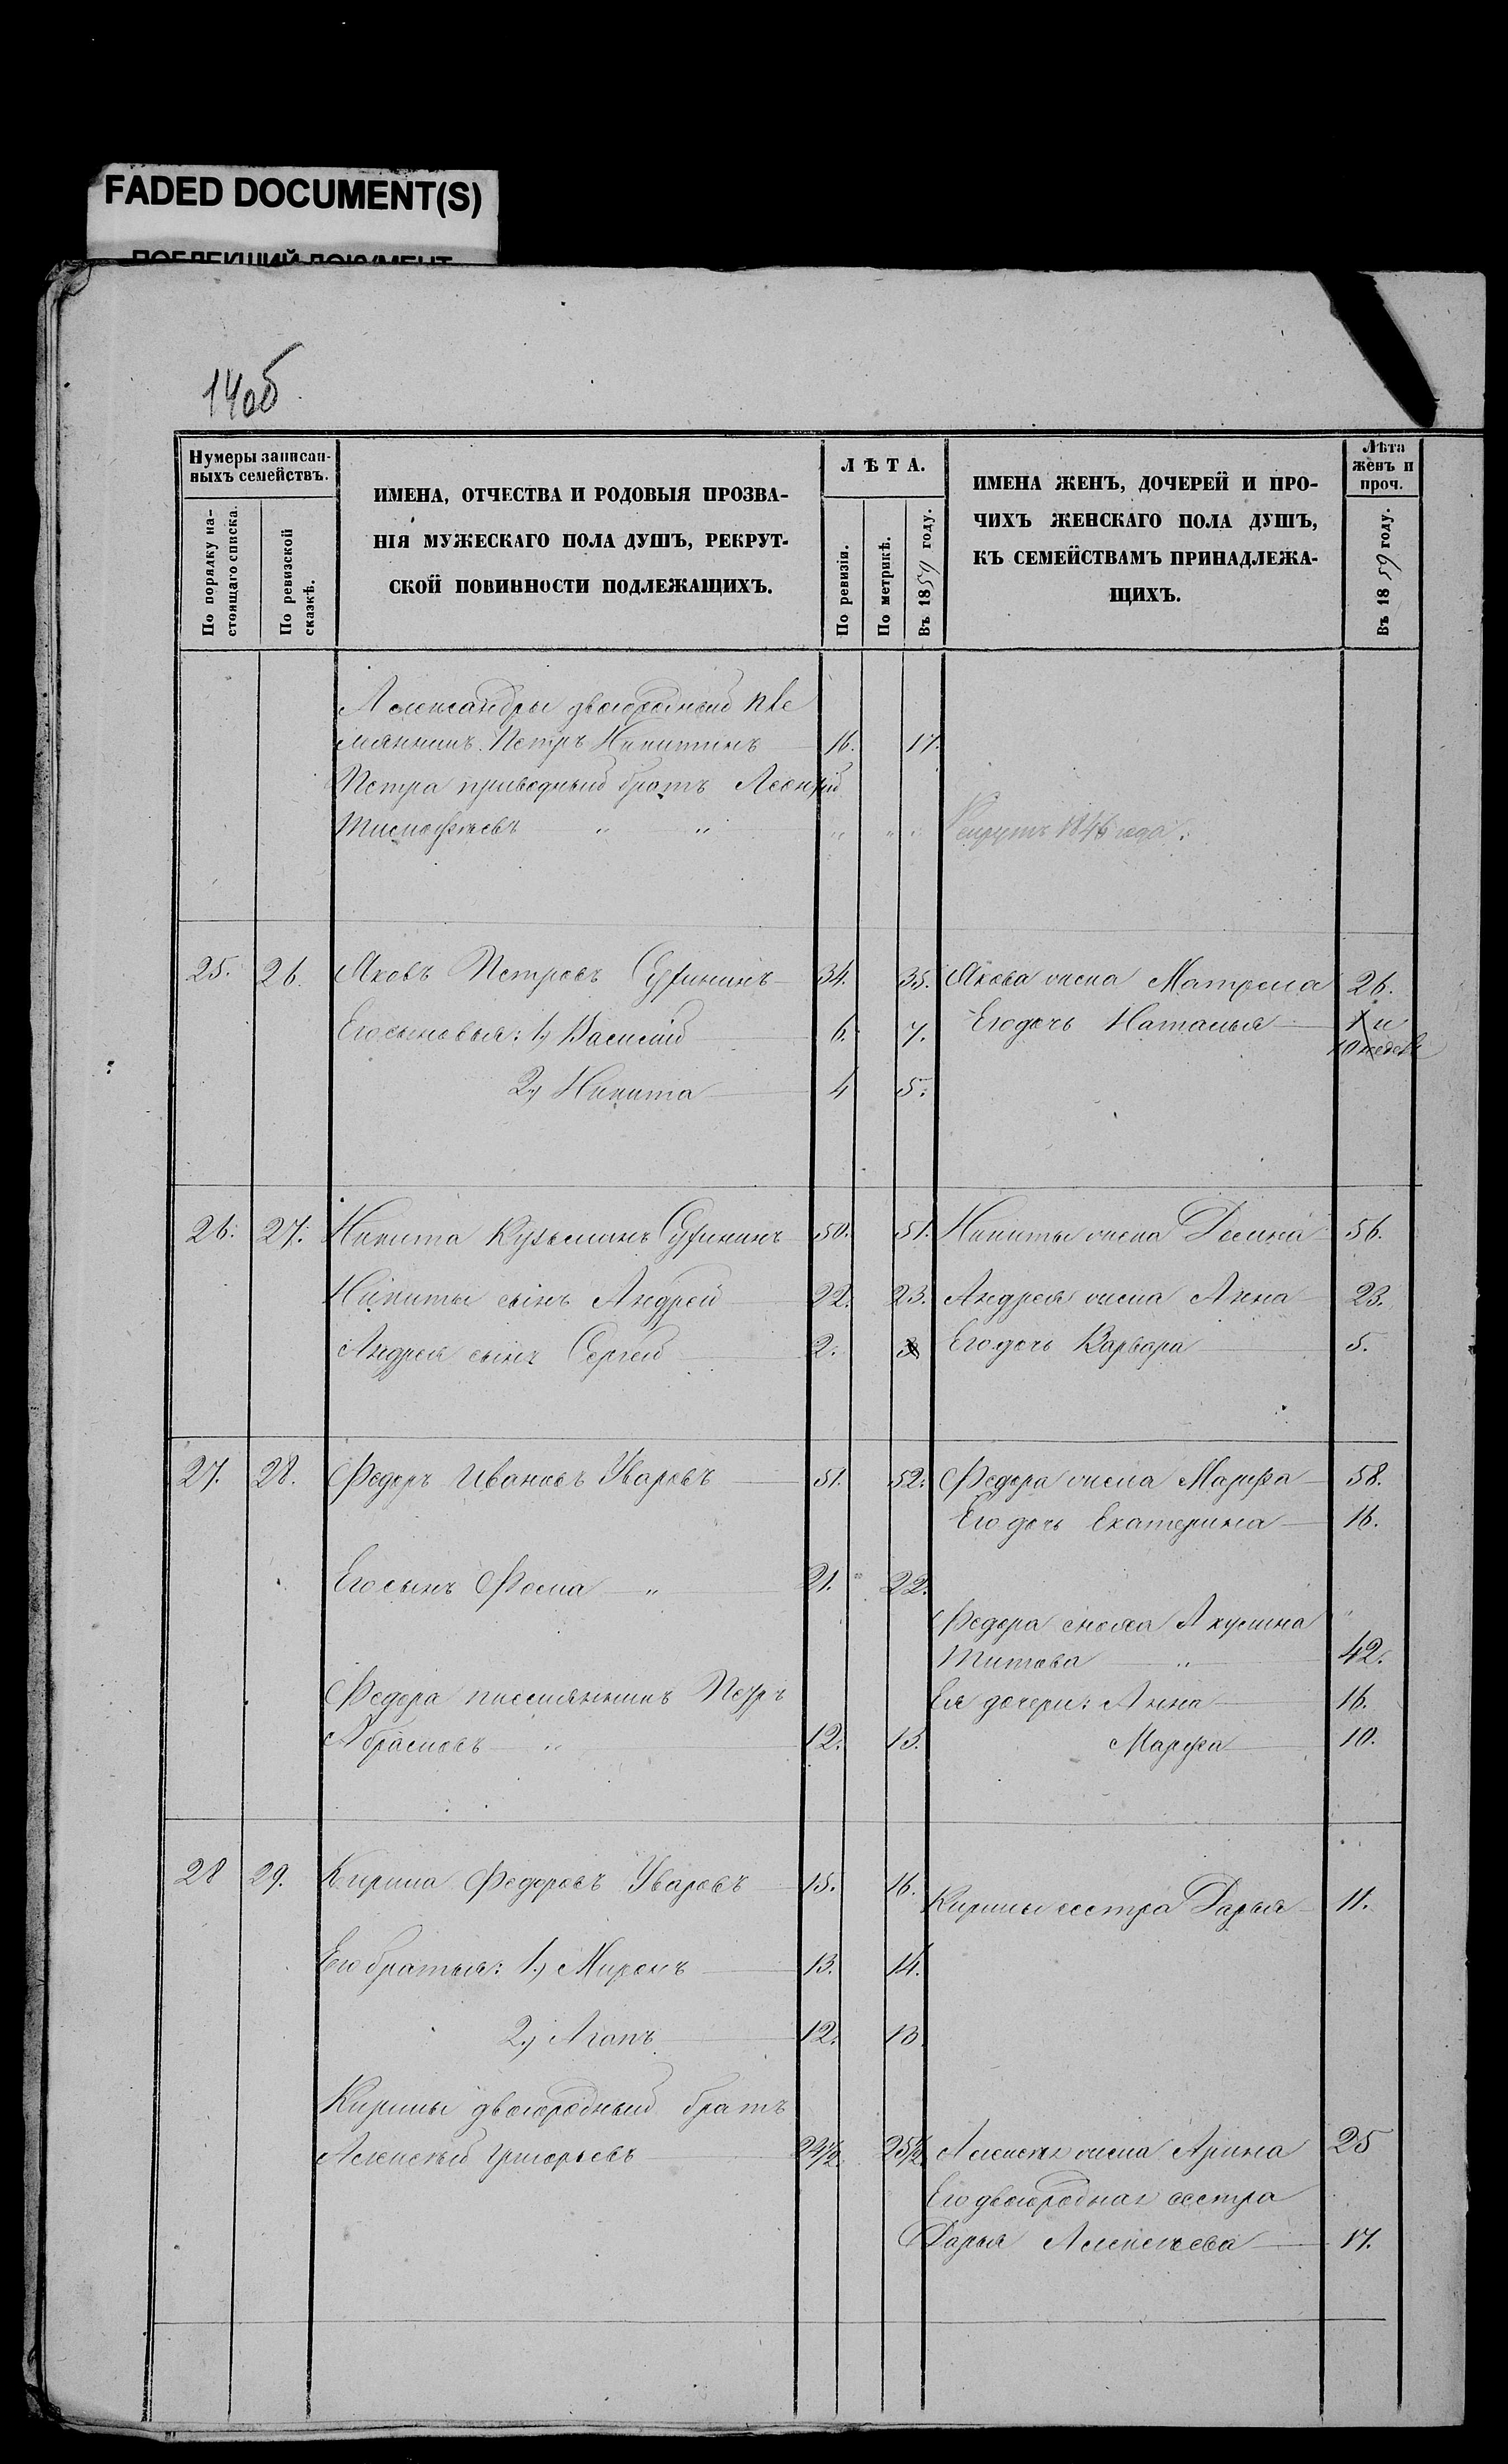 FADED DOCUMENT(S)
ПОБЛЕКШИЙ ДОКУМЕНТ
14об
Нумеры записан-
ныхъ семействъ.
По порядку на-
стоящаго списка.
По ревизской
сказкѣ.
ИМЕНА, ОТЧЕСТВА И РОДОВЫЯ ПРОЗВА-
НІЯ МУЖЕСКАГО ПОЛА ДУШЪ, РЕКРУТ-
СКОЙ ПОВИННОСТИ ПОДЛЕЖАЩИХЪ.
ЛѢТА.
По ревизіи.
По метрикѣ.
Въ 1859 году.
ИМЕНА ЖЕНЪ, ДОЧЕРЕЙ И ПРО-
ЧИХЪ ЖЕНСКАГО ПОЛА ДУШЪ,
КЪ СЕМЕЙСТВАМЪ ПРИНАДЛЕЖА-
ЩИХЪ.
Лѣта
женъ и
проч.
Въ 1859 году.
Александры двоюродный пле
мянникъ Петръ Никитинъ 16. 17.
Петра приводный братъ
Тимофѣевъ " " " " " Рекрутъ 1846 года.
25. 26. Яковъ Петровъ 34. 35. Якова жена Матрена 26.
Его сыновья: 1) Василій 6. 7. Его дочь Наталья 1 и
10 недель
2) Никита 4 5.
26. 27. Никита Кузьминъ 50. 51. Никиты жена 56.
Никиты сынъ Андрей 22. 23. Андрея жена Анна 23.
Андрея сынъ Сергей 2. 3 Его дочь Варвара 5.
27. 28. Федоръ Ивановъ Уваровъ 51. 52. Федора жена Марфа 58.
Его дочь Екатерина 16.
Его сынъ Фома " 21. " 22.
Федора сноха Акулина "
Титова " 42.
Федора племянникъ Петръ
Ея дочери: Анна 16.
Абрамовъ " 12. 13. Марфа 10.
28 29. Кирила Федоровъ Уваровъ 15. 16.
Кирилы сестра Дарья 11.
Его братья: 1) Миронъ 13. 14.
2) Агапъ 12. 13
Кирилы двоюродный братъ
Алексѣй Григорьевъ 24½. 25½. Алексѣя жена Арина 25
Его двоюродная сестра
Дарья Алексѣева 17.